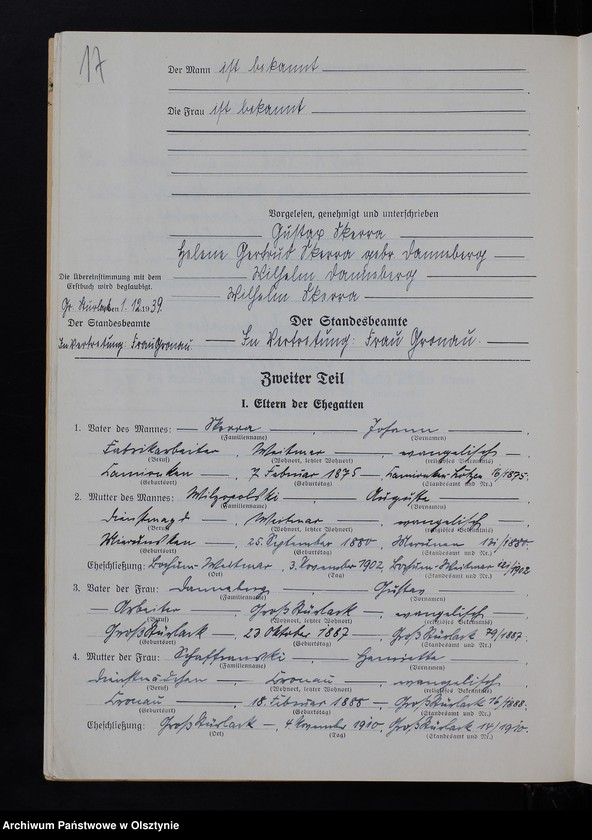 17
Der Mann ist bekannt
Die Frau ist bekannt
Vorgelesen, genehmigt und unterschrieben
Gustav Skerra
Helene Gertrud Skerra geb. Danneberg
Wilhelm Danneberg
Wilhelm Skerra
Die Übereinstimmung mit dem
Erstbuch wird beglaubigt.
Gr. Stürlack, den 1. 12. 1939.
Der Standesbeamte
In Vertretung: Frau Gronau.
Der Standesbeamte
In Vertretung: Frau Gronau.
Zweiter Teil
I. Eltern der Ehegatten
1. Vater des Mannes: Skerra, Johann,
(Familienname) (Vornamen)
Fabrikarbeiter, Weitmar, evangelisch
(Beruf) (Wohnort, letzter Wohnort) (religiöses Bekenntnis)
Kamionken, 7. Februar 1875, Kamionken Lötzen 16/1875.
(Geburtsort) (Geburtstag) (Standesamt und Nr.)
2. Mutter des Mannes: Auguste,
(Familienname) (Vornamen)
Dienstmagd, Weitmar, evangelisch
(Beruf) (Wohnort, letzter Wohnort) (religiöses Bekenntnis)
25. September 1880, Mierunen /1880.
(Geburtsort) (Geburtstag) (Standesamt und Nr.)
Eheschließung: Bochum-Weitmar, 3. November 1902, Bochum-Weitmar /1902
(Ort) (Tag) (Standesamt und Nr.)
3. Vater der Frau: Danneberg, Gustav,
(Familienname) (Vornamen)
Arbeiter, Groß Stürlack, evangelisch
(Beruf) (Wohnort, letzter Wohnort) (religiöses Bekenntnis)
Groß Stürlack, 23. Oktober 1887, Groß Stürlack 79/1887.
(Geburtsort) (Geburtstag) (Standesamt und Nr.)
4. Mutter der Frau: Henriette,
(Familienname) (Vornamen)
Dienstmädchen, Kronau, evangelisch
(Beruf) (Wohnort, letzter Wohnort) (religiöses Bekenntnis)
Kronau, 18. Februar 1888, Groß Stürlack 16/1888.
(Geburtsort) (Geburtstag) (Standesamt und Nr.)
Eheschließung: Groß Stürlack, 4. November 1910, Groß Stürlack 14/1910.
(Ort) (Tag) (Standesamt und Nr.)
Archiwum Państwowe w Olsztynie